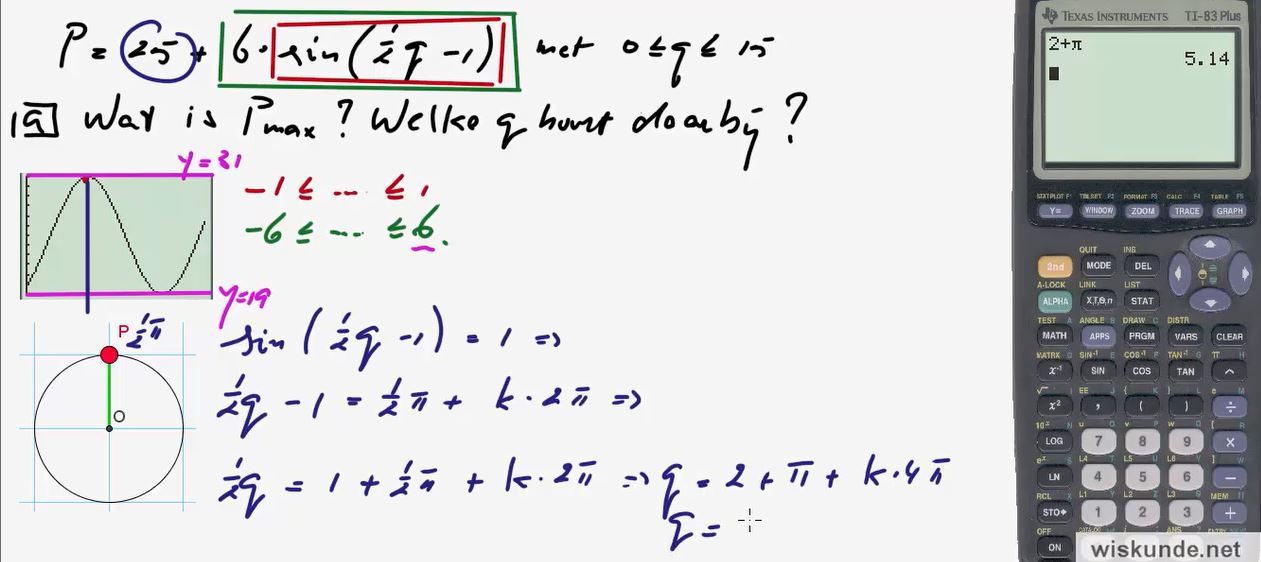 P = 25 + 6 · sin(½q − 1) met 0 ≤ q ≤ 15
1a Wat is Pmax? Welke q hoort daarbij?
y = 31
−1 ≤ ... ≤ 1
−6 ≤ ... ≤ 6.
y=19
P ½π
O
sin(½q − 1) = 1 =>
½q − 1 = ½π + k · 2π =>
½q = 1 + ½π + k · 2π => q = 2 + π + k · 4π
q =
TEXAS INSTRUMENTS TI-83 Plus
2+π
5.14
STATPLOT F1 TBLSET F2 FORMAT F3 CALC F4 TABLE F5
Y= WINDOW ZOOM TRACE GRAPH
QUIT INS
2nd MODE DEL
A-LOCK LINK LIST
ALPHA X,T,Θ,n STAT
TEST A ANGLE B DRAW C DISTR
MATH APPS PRGM VARS CLEAR
MATRX D SIN⁻¹ E COS⁻¹ F TAN⁻¹ G π H
x⁻¹ SIN COS TAN ^
√ I EE J { K } L e M
x² , ( ) ÷
10ˣ N u O v P w Q [ R
LOG 7 8 9 ×
eˣ S L4 T L5 U L6 V ] W
LN 4 5 6 −
RCL X L1 Y L2 Z L3 θ MEM "
STO▸ 1 2 3 +
OFF
ON
wiskunde.net